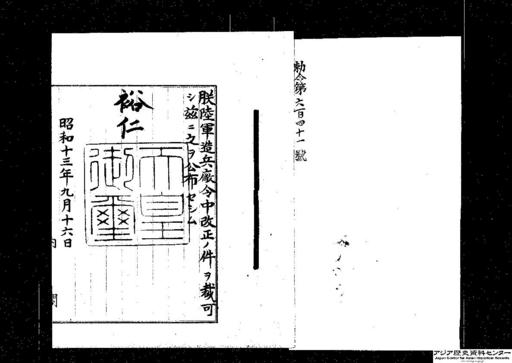 勅令第六百四十一號
朕陸軍造兵廠令中改正ノ件ヲ裁可
シ茲ニ之ヲ公布セシム
裕仁
天皇御璽
昭和十三年九月十六日
アジア歴史資料センター
Japan Center for Asian Historical Records